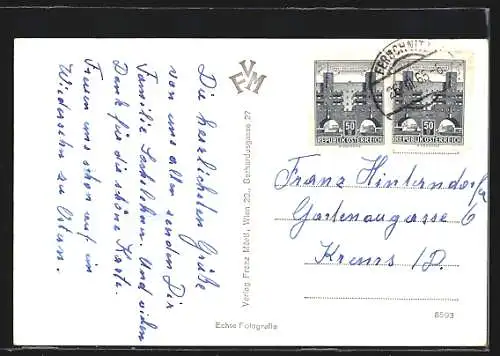 Die herzlichsten Grüße
von uns allen senden Dir
Familie
Dank für die schöne Karte. Und vielen
Freuen uns schon auf ein
Wiedersehn zu Ostern.
VFM
Verlag Franz Mörtl, Wien 22., Gerhardusgasse 27
Echte Fotografie
50
REPUBLIK ÖSTERREICH
50
REPUBLIK ÖSTERREICH
Franz Hinterndorfer
Gartenaugasse 6
Krems/D.
8593